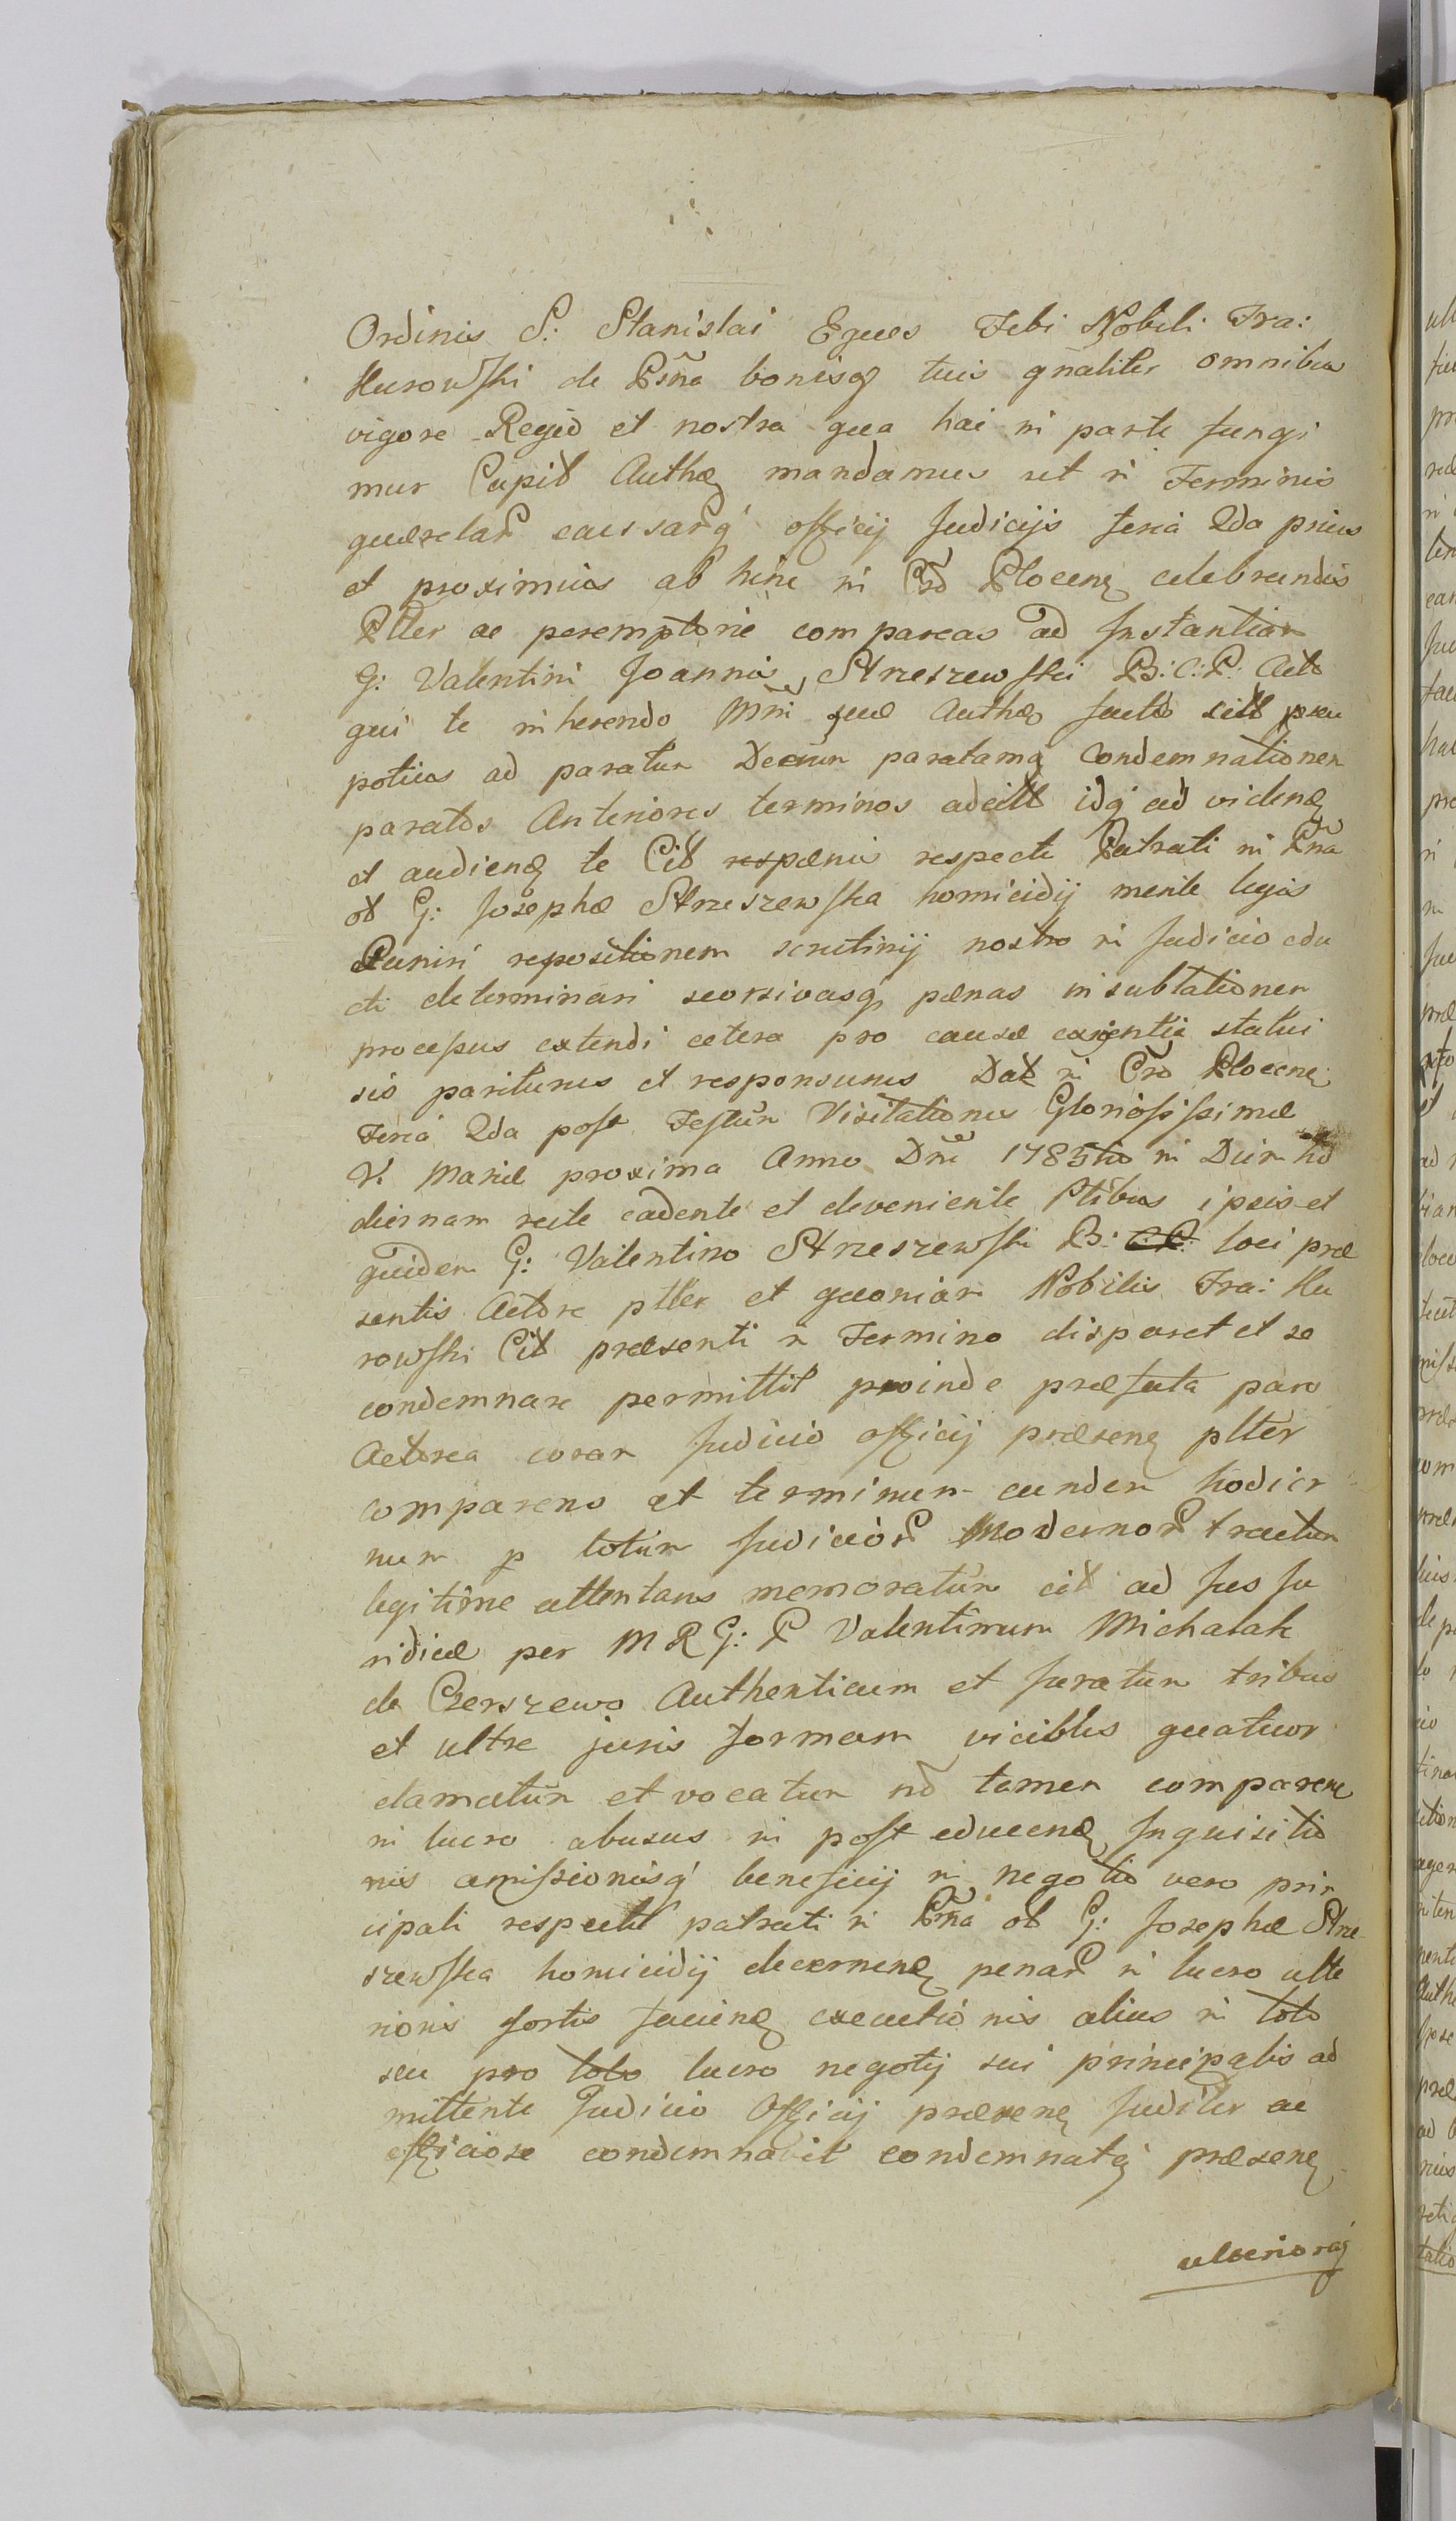 Ordinis S: Stanislai Eques Tibi Nobili Fra:
Kurowski de Psña bonisq tuis gñaliter omnibus
vigore Regiã et nostra qua hac in parte fungi
mur Capit Authæ mandamus ut in Terminis
quærelar caussarq officij Judicijs feria 2da prius
et proximius ab hinc in Cro Plocenq celebrandis
Ptler ac peremptorie compareas ad Instantiam
G: Valentini Joannis Strzeszewski B: C: P: Act
qui te inherendo Mni suæ Autho facto cilt
potius ad paratum Decrum paratamq Condemnationem
paratos Anteriores terminos adcitt idq ad videnq
et audienq te Cit pænis respectu Patrati in Psña
ob G: Josephæ Strzeszewska homicidij mente legis
Puniri repositionem scrutinij nostro in Judicio edu
cti determinari seorsivasq pænas in sublationem
processus extendi cetera pro causæ exigentia statui
sis pariturus et responsurus Dat in Cro Plocenq
Feria 2da post Festum Visitationis Gloriosissimæ
V: Mariæ proxima Anno Dni 1785to in Diem ho
diernam recte cadente et deveniente Ptibus ipsis et
quidem G: Valentino Strzeszewski B: C:P: loci præ
sentis Actore ptler et quoniam Nobilis Fra: Ku
rowski Cit præsenti in Termino disparet et se
condemnare permittit proinde præfata pars
Actorea coram Judicio officij præsenq ptler
comparens et terminum eundem hodier
num p totum Judicior Modernor tractum
legitime attentans memoratum cit ad Jus Ju
ridice per M R G: P Valentinum Michalak
de Czerszewo Authenticum et Juratum tribus
et ultra juris formam vicibus quatuor
clamatum et vocatum nõ tamen comparenq
in lucro abusus in post educenq Inquisitio
nis amissionisq beneficij in negotio vero prin
cipali respectu patrati in Psña ob G: Josephæ Strze
szewska homicidij decernenq penar in lucro ulte
rioris fortis faciendq executionis alius in toto
seu pro toto lucro negotij sui principalis ad
mittente Judicio Officij præsenq Judiler ac
officiose condemnavit condemnatq præsenq
ulterioraq